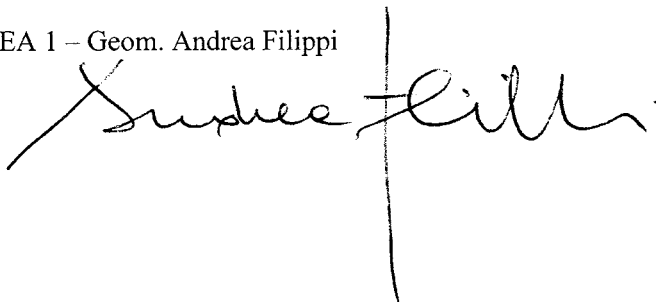 EA 1 – Geom. Andrea Filippi
Andrea Filippi